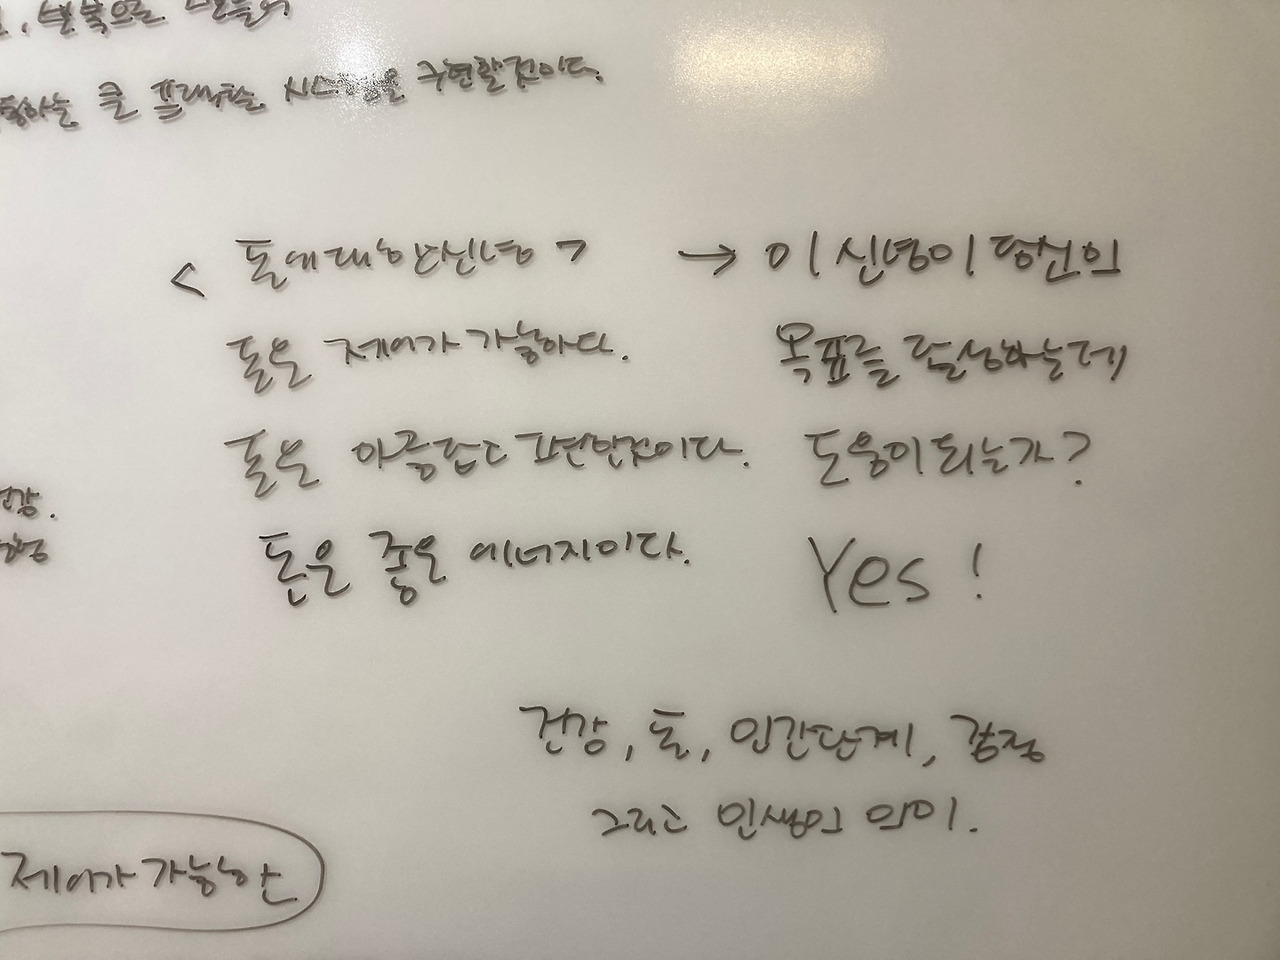 큰 프랙탈 시스템을 구현할것이다.
< 돈에대한신념 >
돈은 제어가 가능하다.
돈은 아름답고 편안한것이다.
돈은 좋은 에너지이다.
→ 이 신념이 당신의
목표를 달성하는데
도움이되는가?
Yes !
건강, 돈, 인간관계, 감정
그리고 인생의 의미.
제어가 가능한